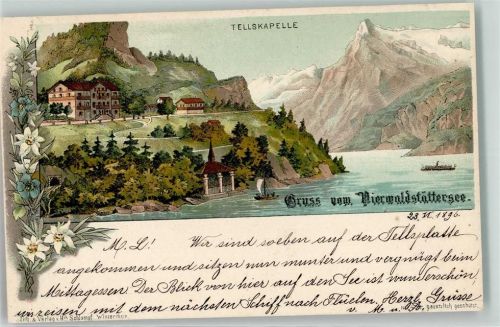 TELLSKAPELLE
Gruss vom Vierwaldstättersee.
23. VI. 1896.
M. L! Wir sind soeben auf der Tellsplatte
angekommen und sitzen nun munter und vergnügt beim
Mittagessen. Der Blick von hier auf den See ist wunderschön
reisen mit dem nächsten Schiff nach Flüelen. Herzl. Grüsse
v. M. u.
Lith. & Verlag v. Schlumpf, Winterthur. gesetzlich geschützt.